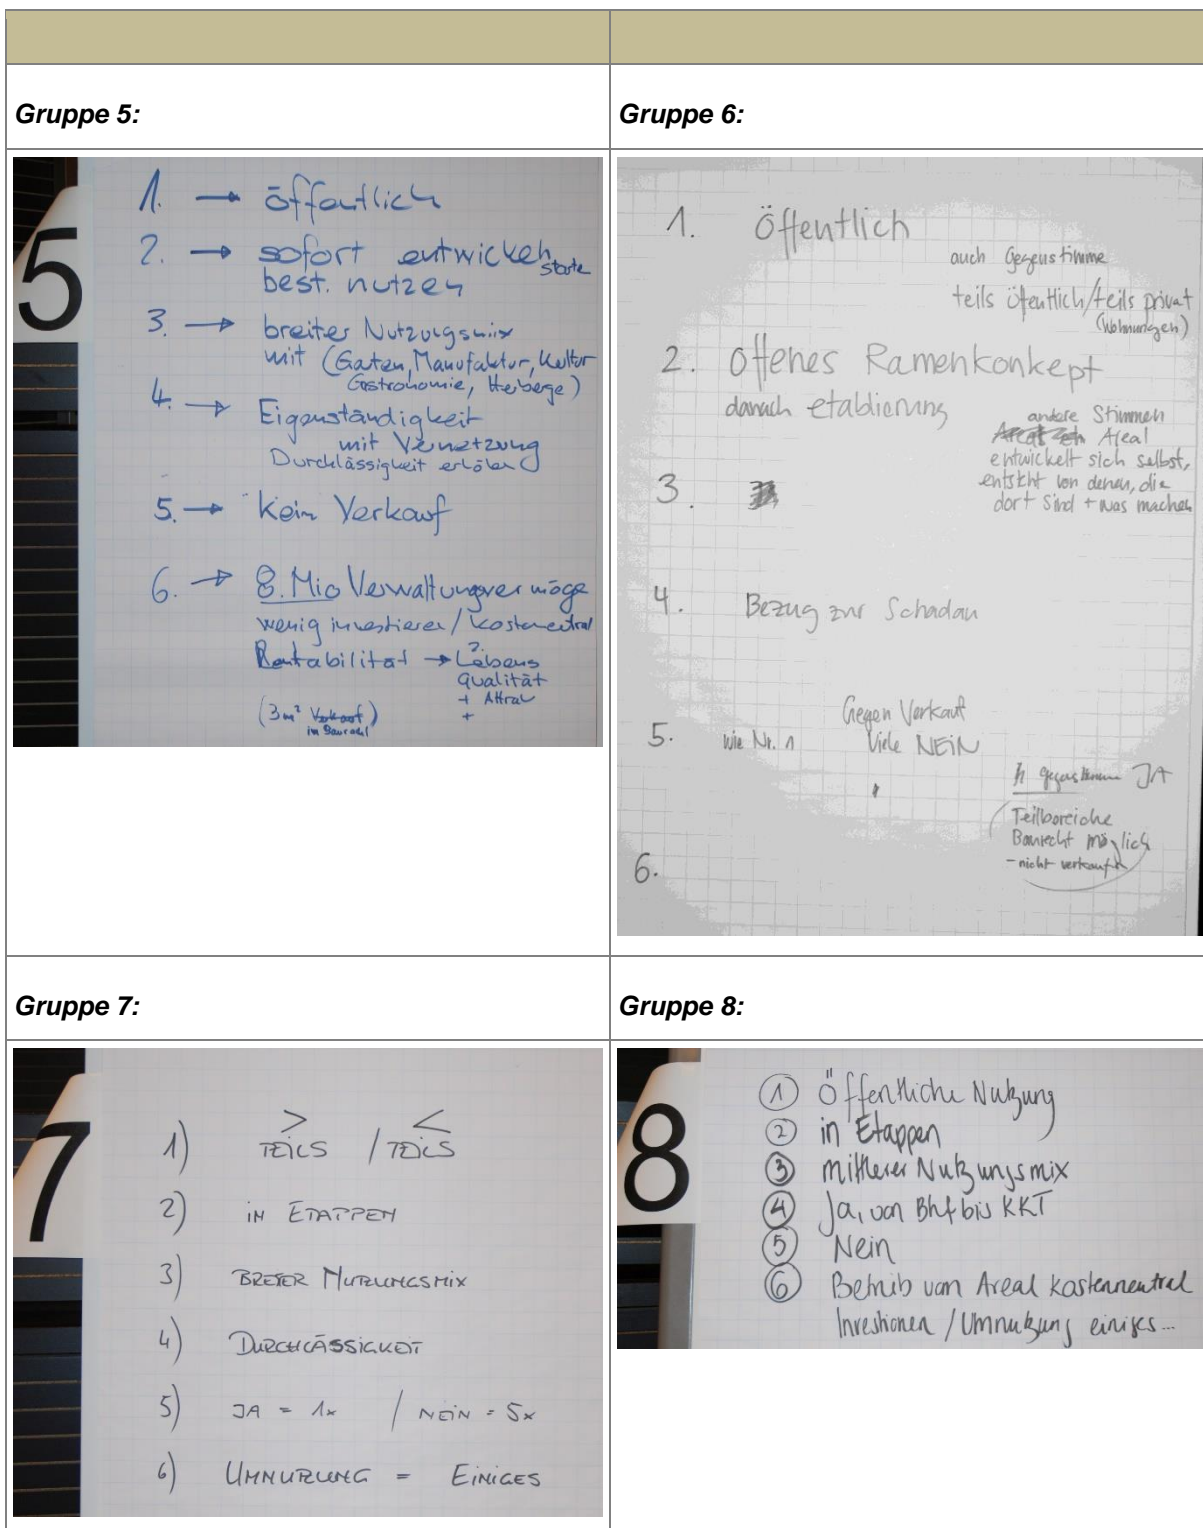 Gruppe 5:
5
1. → öffentlich
2. → sofort entwickeln
best. nutzen
3. → breiter Nutzungsmix
mit (Gaten, Manufaktur, Kultur
Gastronomie, Herberge)
4. → Eigenständigkeit
mit Vernetzung
Durchlässigkeit erhöhen
5. → kein Verkauf
6. → 8. Mio Verwaltungsvermöge
wenig investieren / kostenneutral
Rentabilität → Lebens
qualität
+ Attrak
+
(3m² Verkauf)
im
Gruppe 6:
1. Öffentlich
auch Gegenstimme
teils öffentlich/teils privat
(Wohnungen)
2. offenes Ramenkonkept
danach etablierung
andere Stimmen
Areal
entwickelt sich selbst,
entsteht von denen, die
dort sind + was machen
3
4. Bezug zur Schadau
Gegen Verkauf
5. wie Nr. 1 Viele NEIN
gegenstimmen JA
Teilbereiche
Baurecht möglich
- nicht verkaufen
6.
Gruppe 7:
7
1) > TEILS / < TEILS
2) IN ETAPPEN
3) BREITER NUTZUNGSMIX
4) DURCHLÄSSIGKEIT
5) JA = 1x / NEIN = 5x
6) UMNUTZUNG = EINIGES
Gruppe 8:
8
1 Öffentliche Nutzung
2 in Etappen
3 mittlerer Nutzungsmix
4 Ja, von Bhf bis KKT
5 Nein
6 Betrieb vom Areal kostenneutral
Investionen / Umnutzung einiges...